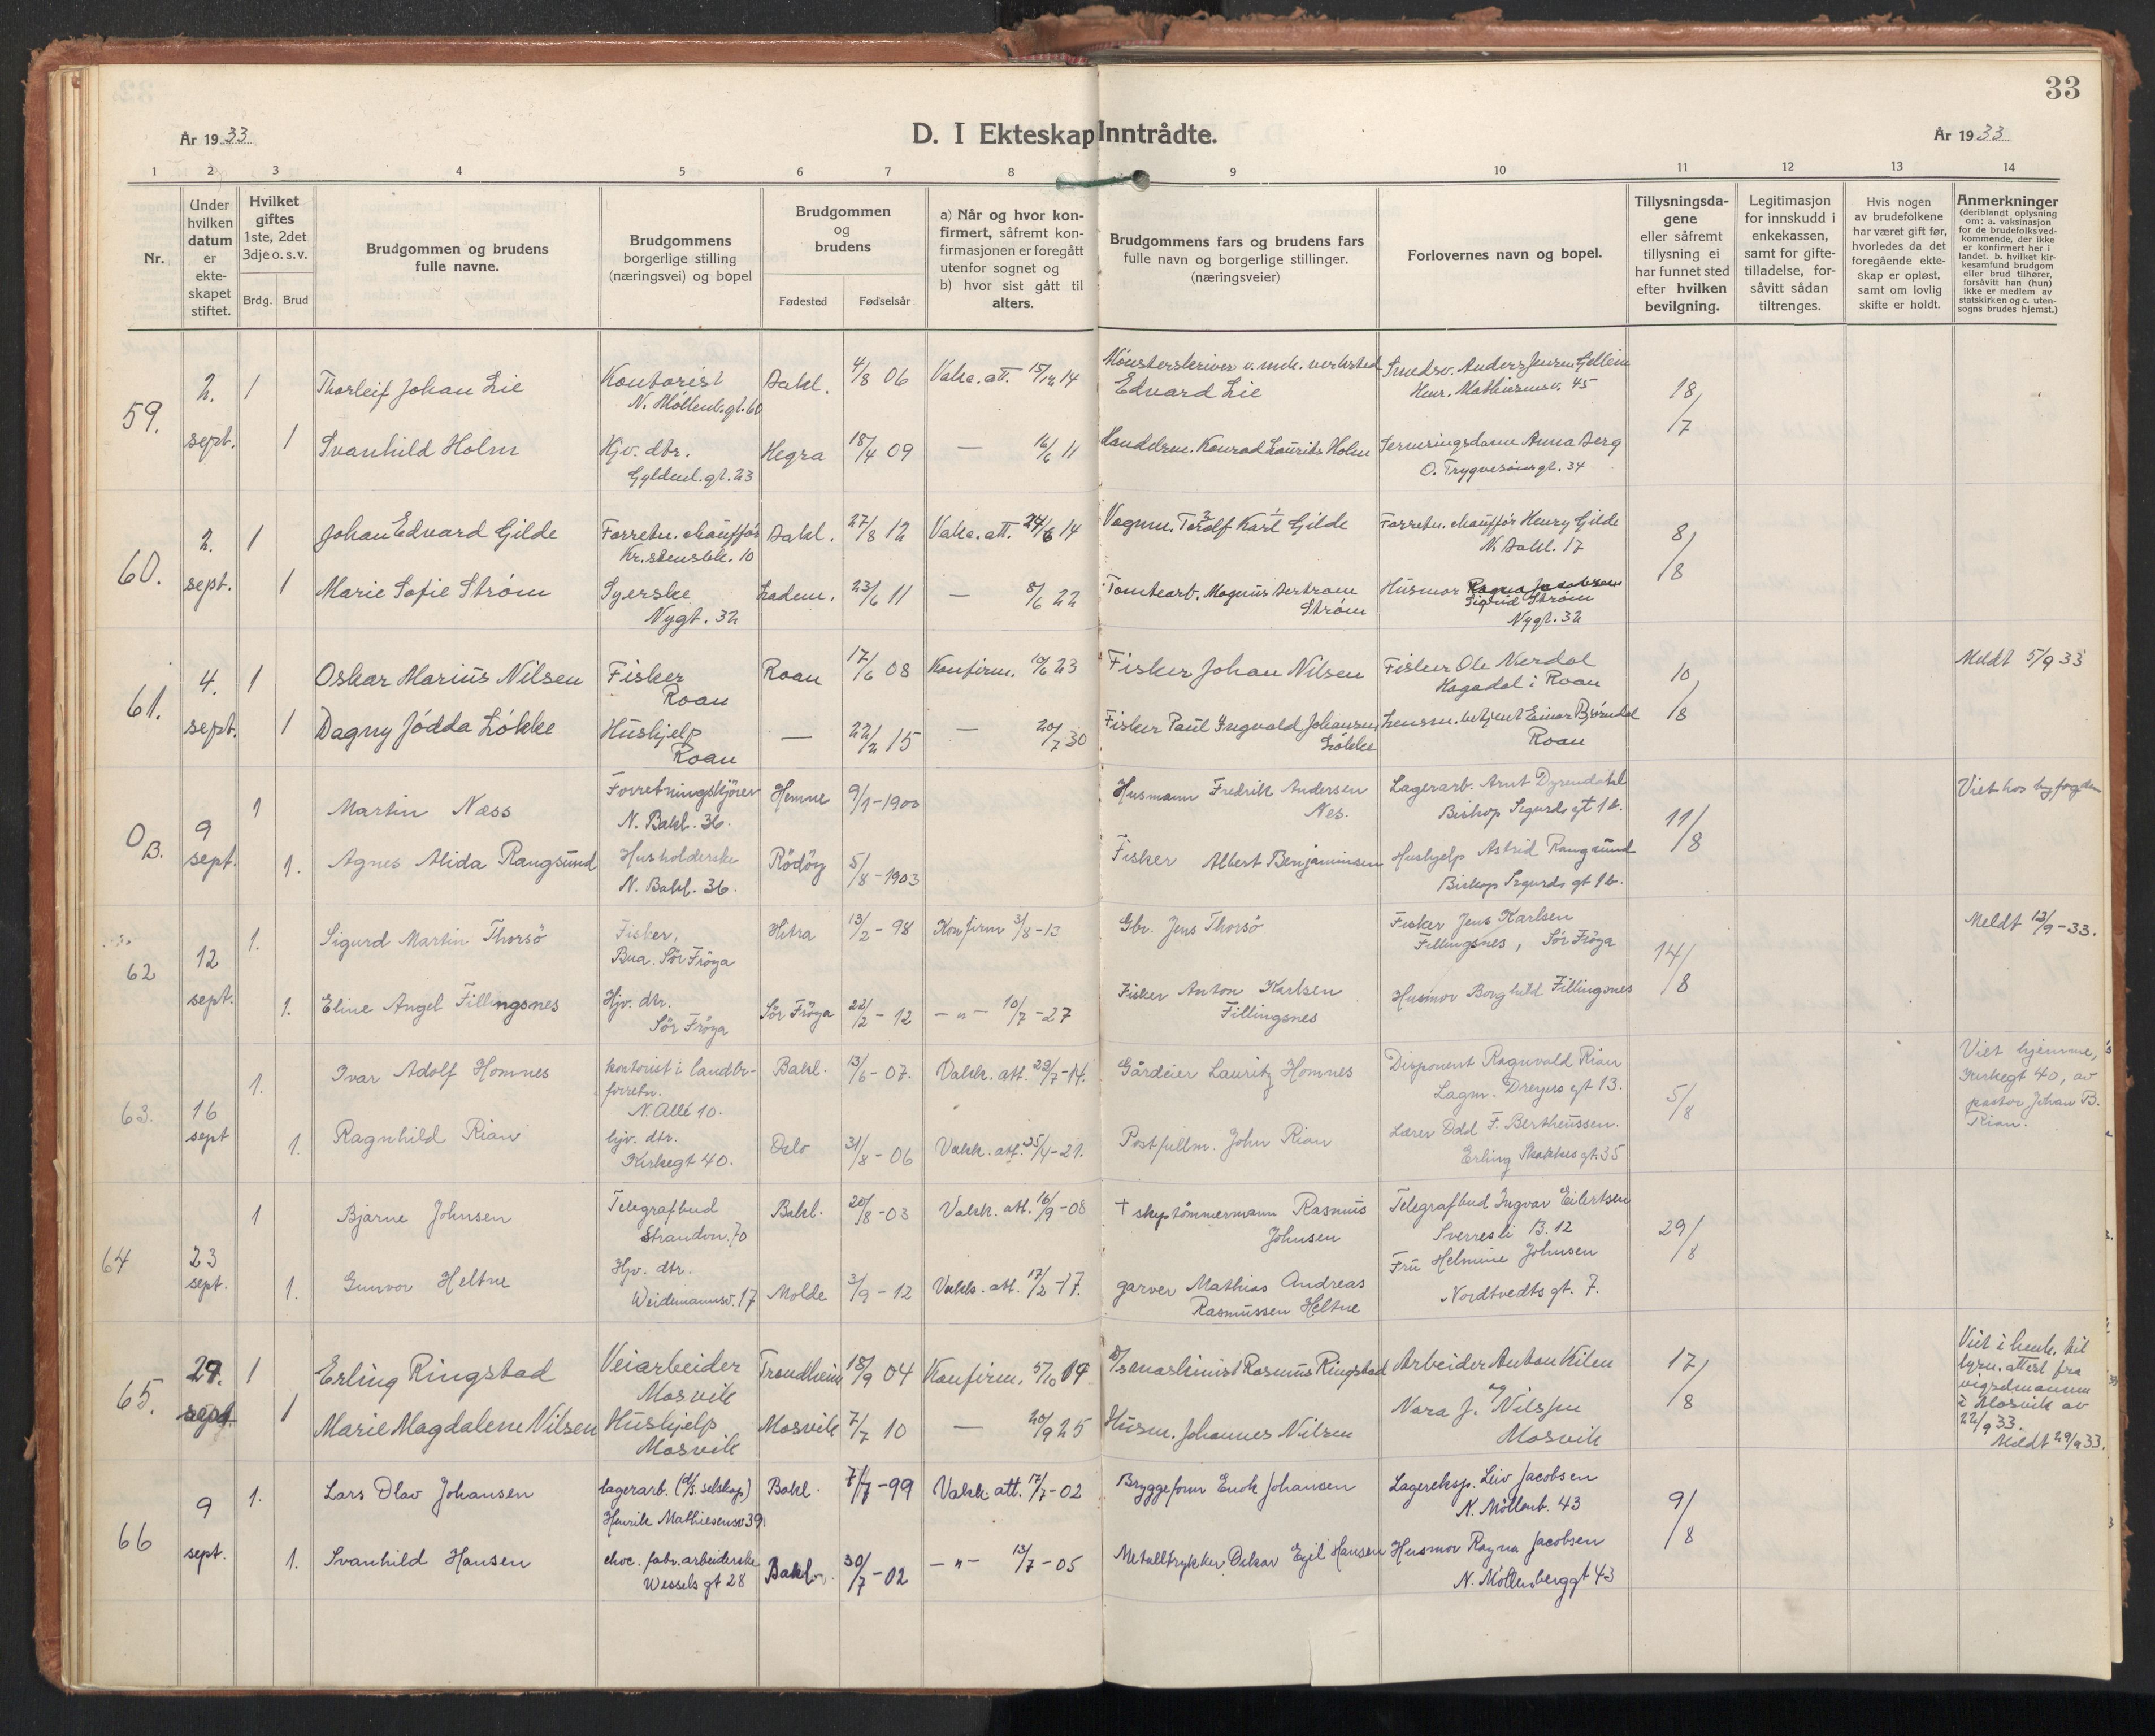 33
År 1933
D. I Ekteskap Inntrådte.
År 1933
1 2 3 4 5 6 7 8 9 10 11 12 13 14
Nr.
Under hvilken datum er ekteskapet stiftet.
Hvilket giftes 1ste, 2det 3dje o. s. v.
Brdg. Brud
Brudgommen og brudens fulle navne.
Brudgommens borgerlige stilling (næringsvei) og bopel
Brudgommen og brudens
Fødested Fødselsår
a) Når og hvor konfirmert, såfremt konfirmasjonen er foregått utenfor sognet og
b) hvor sist gått til alters.
Brudgommens fars og brudens fars fulle navn og borgerlige stillinger. (næringsveier)
Forlovernes navn og bopel.
Tillysningsdagene eller såfremt tillysning ei har funnet sted efter hvilken bevilgning.
Legitimasjon for innskudd i enkekassen, samt for giftetilladelse, forsåvitt sådan tiltrenges.
Hvis nogen av brudefolkene har været gift før, hvorledes da det foregående ekteskap er opløst, samt om lovlig skifte er holdt.
Anmerkninger (deriblandt oplysning om: a. vaksinasjon for de brudefolksvedkommende, der ikke er konfirmert her i landet. b. hvilket kirkesamfund brudgom eller brud tilhører, forsåvitt han (hun) ikke er medlem av statskirken og c. utensogns brudes hjemst.)
59. 2. sept. 1 Thorleif Johan Lie Kontorist Bakl. 4/8 06 Vakc. att. 15/12 14 Mønsterskriver v. mek. verksted Smedsv. Anders Jensen Gellein 18/7
N. Møllenb. gt. 60 Edvard Lie Henr. Mathiesensv. 45
1 Svanhild Holm Hjv. dtr. Hegra 18/4 09 — 16/6 11 Handelsm. Konrad Laurits Holm Serveringsdame Anna Berg
Gyldenl. gt. 23 O. Trygvesønsgt. 34
60. 2. sept. 1 Johan Edvard Gilde Forretn. chauffør Bakl. 27/8 12 Vakc. att. 24/6 14 Vognm. Torolf Karl Gilde Forretn. chauffør Henry Gilde 8/8
Kr.stensbk. 10 N. Bakl. 17
1 Marie Sofie Strøm Syerske Ladem. 23/6 11 — 8/6 22 Tomtearb. Magnus Bertram Husmor Sigrid Strøm
Nygt. 32 Strøm Nygt. 32
61. 4. sept. 1 Oskar Marius Nilsen Fisker Roan 17/6 08 Konfirm. 10/6 23 Fisker Johan Nilsen Fisker Ole Nerdal 10/8 Meldt 5/9 33
Roan Hagadal i Roan
1 Dagny Jódda Løkke Hushjelp — 22/2 15 — 20/7 30 Fisker Paul Ingvald Johansen Lensm. betjent Einar Bjørndal
Roan Løkke Roan
O B. 9 sept. 1 Martin Næss Forretningskjører Hemne 9/1-1900 Husmann Fredrik Andersen Lagerarb. Arnt Dyrendahl 11/8 Viet hos byfogden
N. Bakl. 36. Nes. Biskop Sigurds gt 1 b.
1. Agnes Alida Rangsund Husholderske Rödöy 5/8-1903 Fisker Albert Benjaminsen Hushjelp Astrid Rangsund
N. Bakl. 36. Biskop Sigurds gt 1 b.
62 12 sept. 1. Sigurd Martin Thorsö Fisker, Hitra 13/2-98 Konfirm 3/8-13 Gbr. Jens Thorsö Fisker Jens Karlsen 14/8 Meldt 13/9-33.
Bua. Sör Fröya Fillingsnes, Sör Fröya
1. Eline Angel Fillingsnes Hjv. dtr. Sör Fröya 22/2-12 -"- 10/7-27 Fisker Anton Karlsen Husmor Borghild Fillingsnes
Sör Fröya Fillingsnes
63. 16 sept 1. Ivar Adolf Homnes kontorist i landbr- Bakl. 13/6-07. Vakk. att. 22/7-14. Gårdeier Lauritz Homnes Disponent Ragnvald Rian 5/8 Viet hjemme,
forretn. Lagm. Dreyers gt 13. Kirkegt 40, av
N. Allé 10. pastor Johan B.
1. Ragnhild Rian hjv. dtr. Oslo 31/8-06 Vakk. att. 25/4-21. Postfullm. John Rian Lærer Odd F. Bertheussen. Rian.
Kirkegt 40. Erling Skakkes gt. 35
64 23 sept. 1 Bjarne Johnsen Telegrafbud Bakl. 20/8-03 Vakk. att. 16/9-08 + skipstömmermann Rasmus Telegrafbud Ingvar Eilertsen 29/8
Strandvn. 70 Johnsen Sverresli B. 12
1. Gunvor Heltne Hjv. dtr. Molde 3/9-12 Vakk. att. 17/2-17. garver Mathias Andreas Fru Helmine Johnsen
Weidemannsv. 17 Rasmussen Heltne Nordtvedts gt. 7.
65. 29. sept. 1 Erling Ringstad Veiarbeider Trondheim 18/9 04 Konfirm. 5/10 19 maskinist Rasmus Ringstad Arbeider Anton Kilen 17/8 Viet i henh. til
Mosvik og lysn. attest fra
1 Marie Magdalene Nilsen Hushjelp Mosvik 7/7 10 — 20/9 25 Husm. Johannes Nilsen Nora J. Nilssen vigselmannen
Mosvik Mosvik i Mosvik av
22/9 33.
Meldt 29/9 33.
66 9 sept. 1. Lars Olav Johansen lagerarb. (d/s. selskap) Bakl. 7/7-99 Vakk att. 17/7-02 Bryggeform Enok Johansen Lagereksp. Leiv Jacobsen 9/8
Henrik Mathiesensv 39. N. Möllenb. 43
1. Svanhild Hansen choc. fabr. arbeiderske Bakl. 30/7-02 -"- 13/7-05 Metalltrykker Oskar Egil Hansen Husmor Ragna Jacobsen
Wessels gt 28 N. Möllenberggt 43